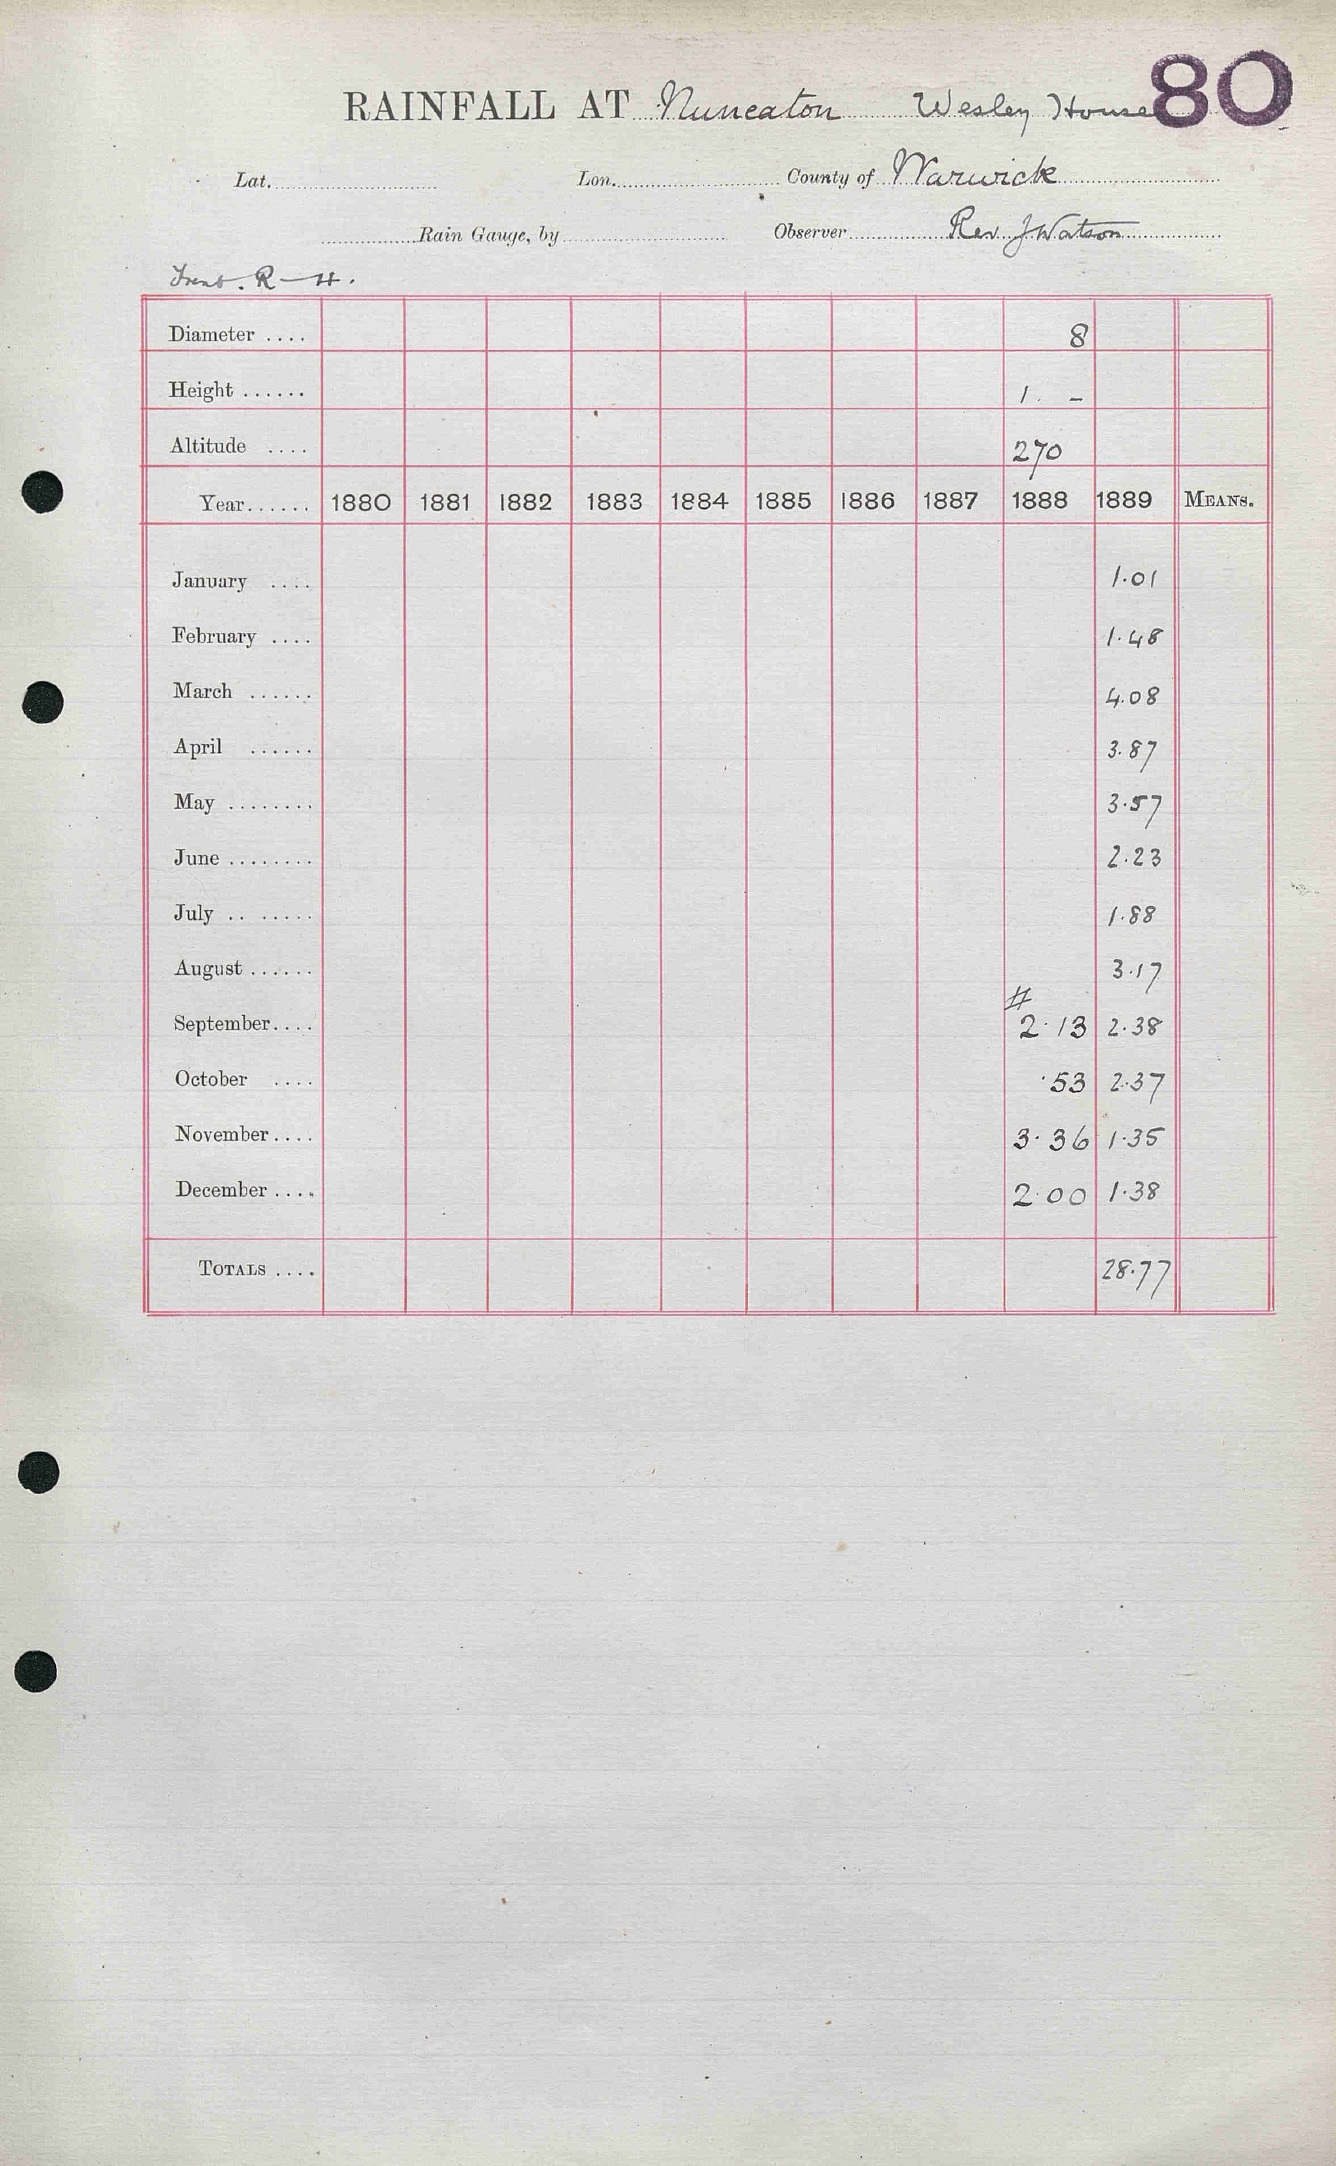 80
RAINFALL AT Nuneaton Wesley House
Lat. Lon. County of Warwick
Rain Gauge, by Observer Rev J Watson
Trent. R — H.
Diameter .... 8
Height ...... 1. –
Altitude .... 270
Year...... 1880 1881 1882 1883 1884 1885 1886 1887 1888 1889 MEANS.
January .... 1.01
February .... 1.48
March ...... 4.08
April ...... 3.87
May ........ 3.57
June ........ 2.23
July .. ...... 1.88
August ...... 3.17
#
September.... 2.13 2.38
October .... .53 2.37
November.... 3.36 1.35
December .... 2.00 1.38
TOTALS .... 28.77